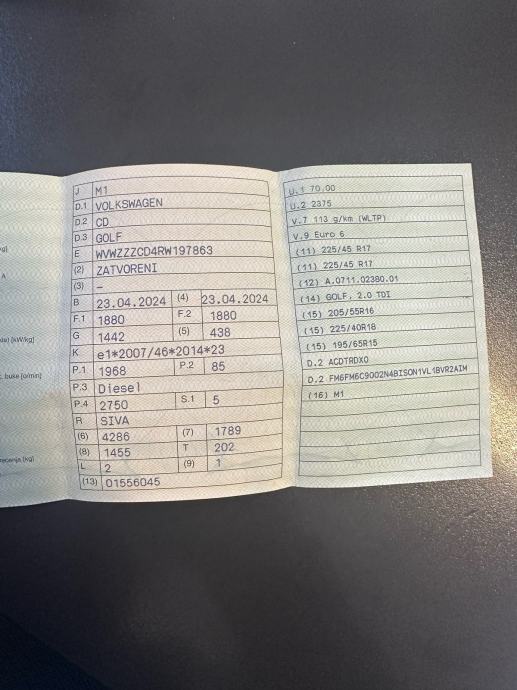 g)
A
de) [kW/kg]
c. buke [o/min]
recenja [kg]
J M1
D.1 VOLKSWAGEN
D.2 CD
D.3 GOLF
E WVWZZZCD4RW197863
(2) ZATVORENI
(3) –
B 23.04.2024 (4) 23.04.2024
F.1 1880 F.2 1880
G 1442 (5) 438
K e1*2007/46*2014*23
P.1 1968 P.2 85
P.3 Diesel
P.4 2750 S.1 5
R SIVA
(6) 4286 (7) 1789
(8) 1455 T 202
L 2 (9) 1
(13) 01556045
U.1 70,00
U.2 2375
V.7 113 g/km (WLTP)
V.9 Euro 6
(11) 225/45 R17
(11) 225/45 R17
(12) A.0711.02380.01
(14) GOLF, 2.0 TDI
(15) 205/55R16
(15) 225/40R18
(15) 195/65R15
D.2 ACDTRDX0
D.2 FM6FM6C9002N4BISON1VL1BVR2AIM
(16) M1